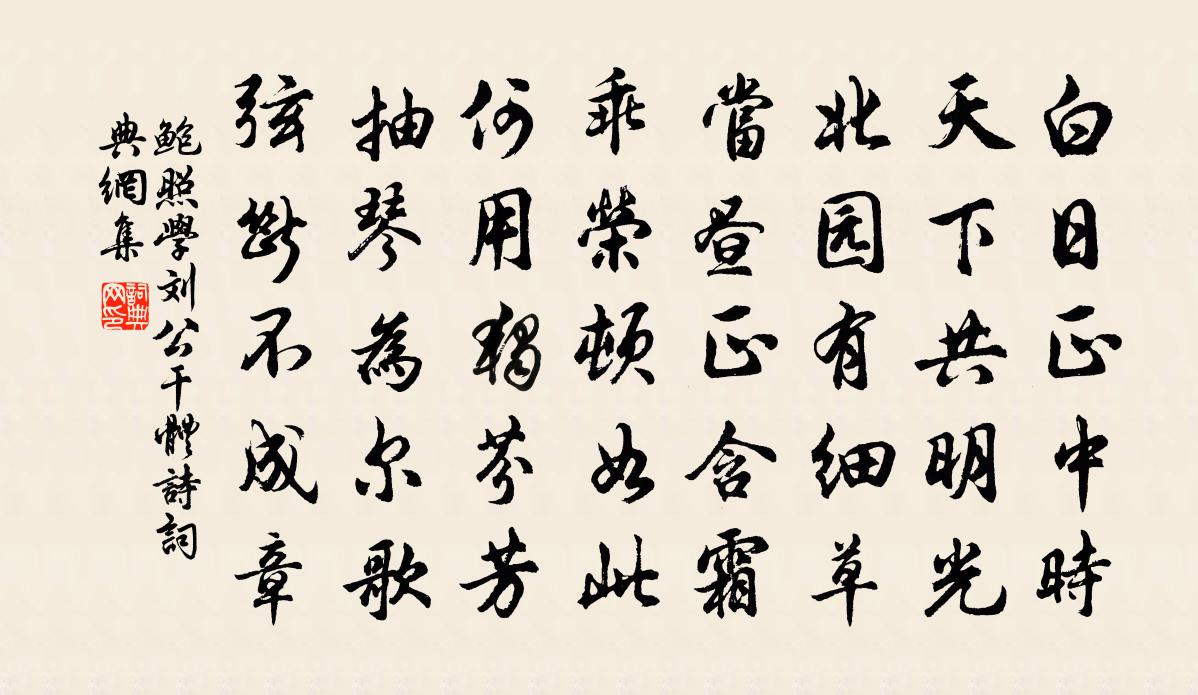 白日正中時
天下共明光
北园有细草
當昼正含霜
乖榮頓如此
何用獨芬芳
抽琴為尔歌
弦斷不成章
鮑照學刘公干體詩詞
典網集
詞典
网印